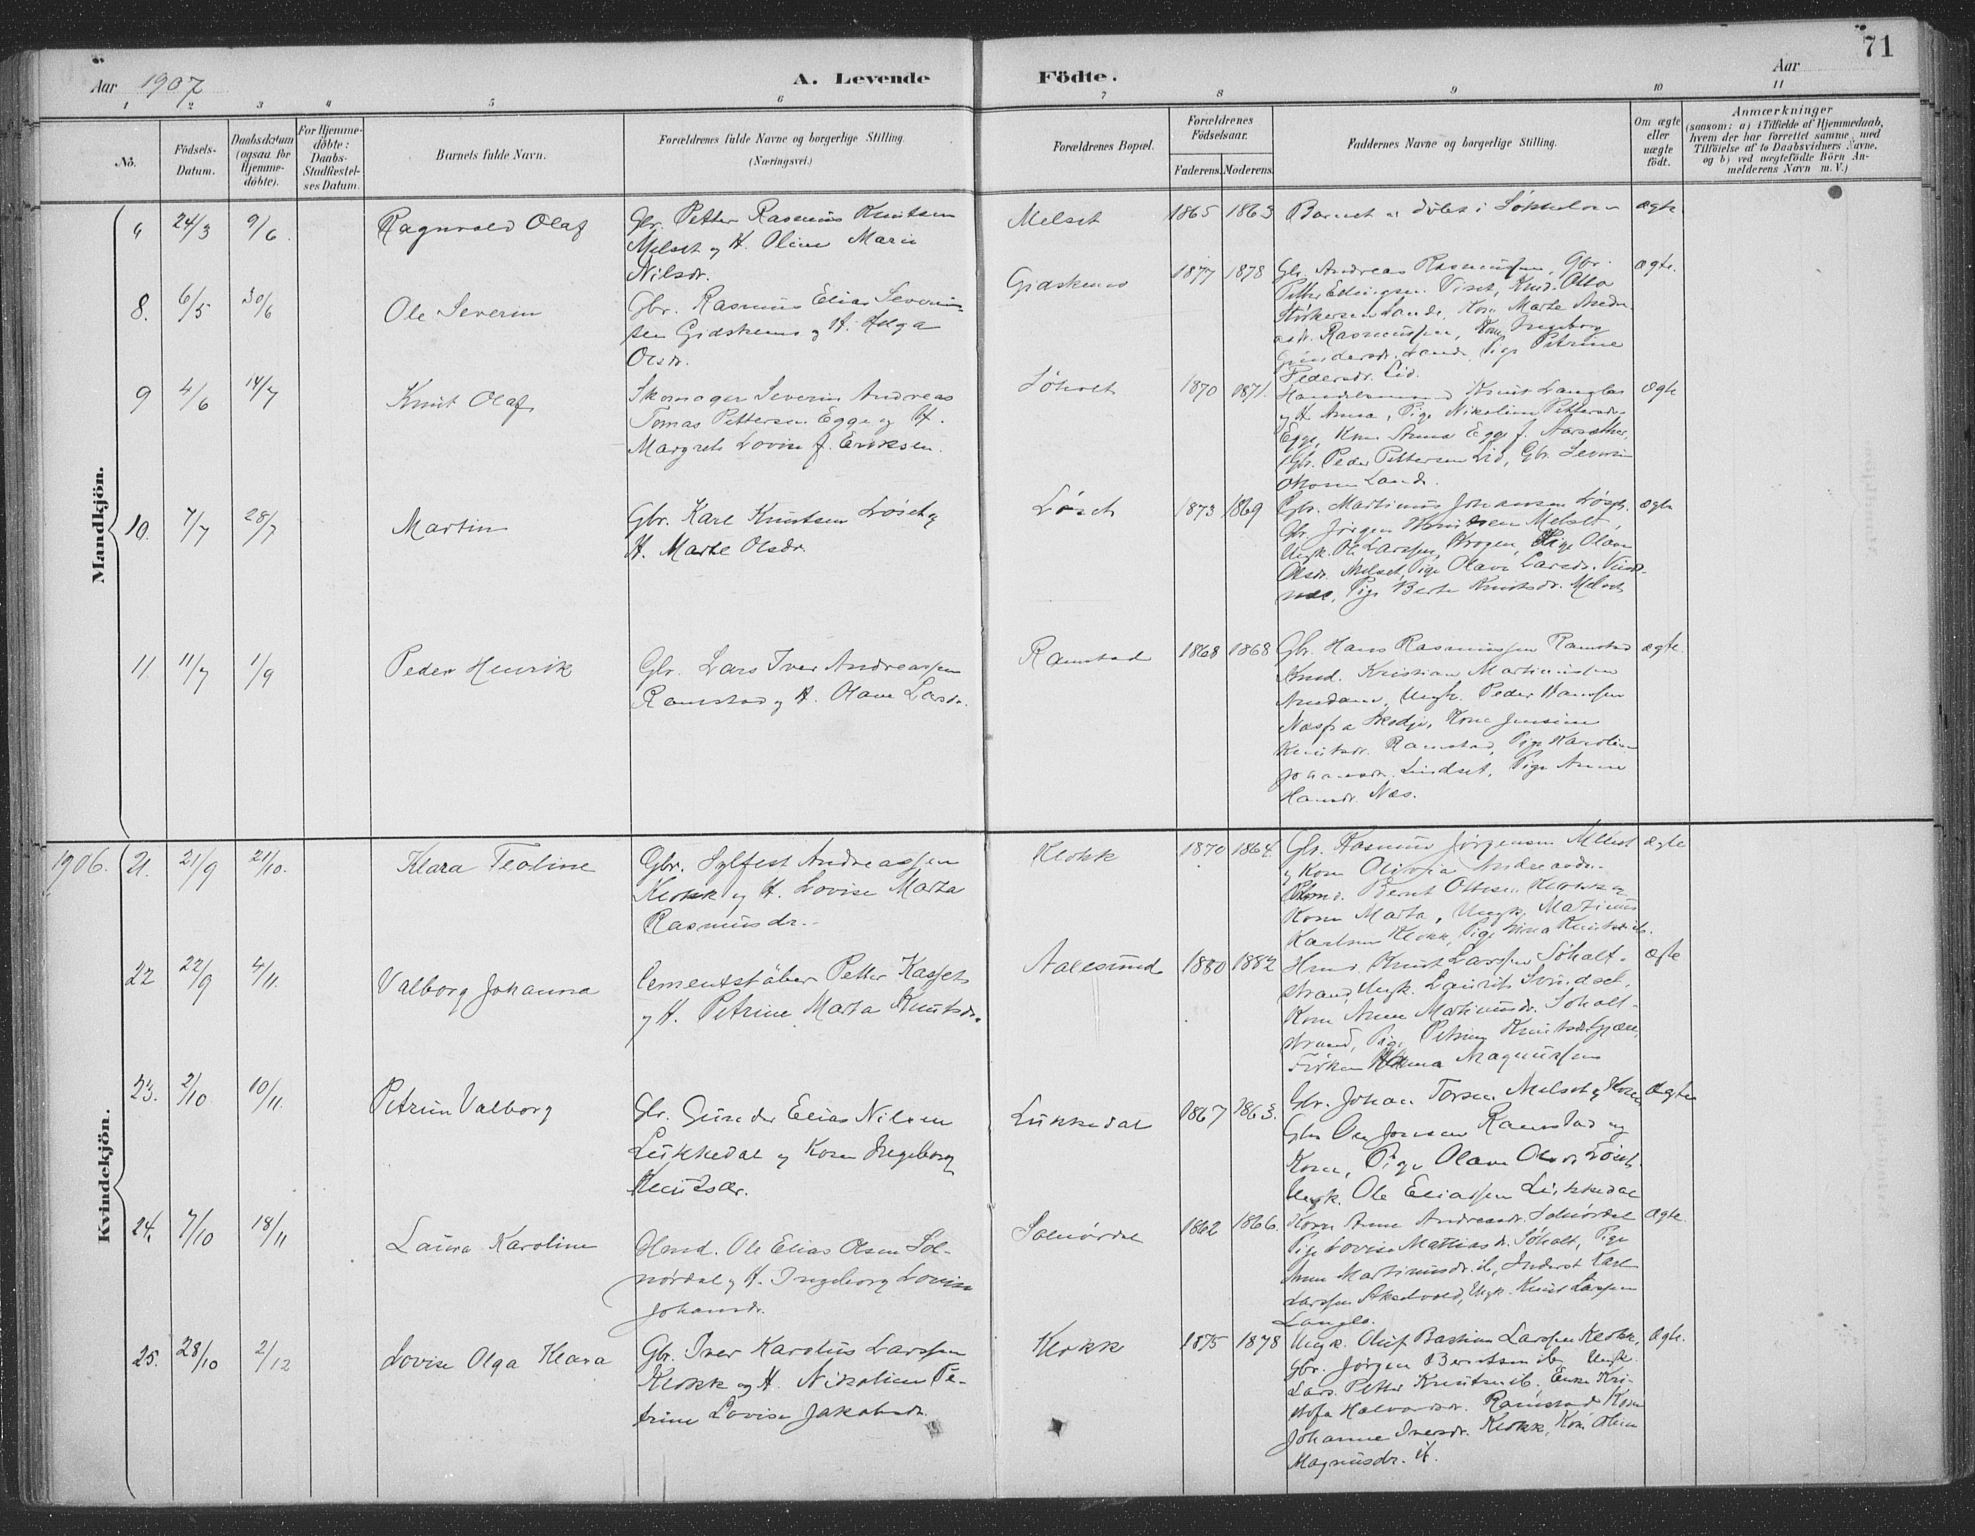 71
Aar 1907
A. Levende Födte.
Aar
1 2 3 4 5 6 7 8 9 10 11
No.
Födsels-Datum.
Daabsdatum (ogsaa for Hjemme-döbte).
For Hjemme-döbte: Daabs-Stadfæstel-ses Datum.
Barnets fulde Navn.
Forældrenes fulde Navne og borgerlige Stilling.
(Næringsvei.)
Forældrenes Bopæl.
Forældrenes Födselsaar.
Faderens. Moderens.
Faddernes Navne og borgerlige Stilling.
Om ægte eller uægte födt.
Anmærkninger
(saasom: a) i Tilfælde af Hjemmedaab,
hvem der har forrettet samme, med
Tilföielse af to Daabsvidners Navne,
og b) ved uægtefödte Börn An-
melderens Navn m. V.)
Mandkjön.
24/3 9/6 Ragnvald Olaf
Gbr. Petter Rasmus Knutsen
Melset og H. Oline Marie
Nilsdr.
Melset 1865 1863
Barnet er døbt i ægte
8. 6/5 30/6 Ole Severin
Gbr. Rasmus Elias Severin-
sen Gjdskemo og H. Helga
Olsdr.
1877 1878
Gbr. Andreas Rasmussen, Gbr.
Viset, Kmd. Otto
Lande, Kone Marte Andre-
asdr. Rasmussen, Kone Ingeborg
Gundersdr. Lande, Pige Petrine
Pedersdr. Lid.
ægte.
9 4/6 14/7 Knut Olaf
Skomager Severin Andreas
Tomas Pettersen Egge og H.
Margrete Lovise f. Eriksen.
Søholt 1870 1871.
Handelsmand Knut Langlo
og H. Anna, Pige Nikoline Pettersdr.
Egge, Kone Anna Egge f. Aarsæther,
Gbr. Peder Pettersen Lid, Gbr. Severin
Ottosen Lande.
ægte
10. 7/7 28/7 Martin
Gbr. Karl Knutsen Løset og
H. Marte Olsdr.
Løset 1873 1869
Gbr. Martinus Johansen Løset,
Gbr. Jørgen Knutsen Melset,
Ungk. Ole Larssen Krogen, Pige Olave
Olsdr. Melset, Pige Olave Larsdr. Vest-
næs, Pige Berte Knutsdr. Melset
ægte
11 11/7 1/9 Peder Henrik
Gbr. Lars Iver Andreassen
Ramstad og H. Olave Larsdr.
Ramstad 1868 1868
Gbr. Hans Rasmussen Ramstad
Kmd. Kristian Martinussen
Ungk. Peder Hanssen
Næs fra Skodje, Kone Jensine
Knutsdr. Ramstad, Pige Karoline
Johansdr. Lindset, Pige Anne
Hansdr. Næs.
ægte.
Kvindekjön.
1906. 21. 21/9 21/10. Klara Teoline
Gbr. Sylfest Andreassen
Klokk og H. Lovise Marta
Rasmusdr.
Klokk 1870 1864.
Gbr. Rasmus Jørgensen Melset
og Kone Olivia Andreasdr.
Kmd. Bernt Ottesen Klokk og
Kone Marta, Ungk. Martinus
Karlsen Klokk, Pige Nina Knutsdr. ib.
ægte
22 22/9 4/11. Valborg Johanna
Cementstøber Petter Kasset
og H. Petrine Marta Knutsdr.
Aalesund 1880 1882
Kmd. Knut Larssen Søholt-
strand, Ungk. Laurits Svindset,
Kone Anne Martinusdr. Søholt-
strand, Pige Petrine Knutsdr.
Frøken Anna Magnussen
ægte
23. 2/10 10/11. Petrine Valborg
Gbr. Gunder Elias Nilsen
Lukkedal og Kone Ingeborg
Knutsdr.
Lukkedal 1867 1863.
Gbr. Johan Torsen Melset og Kone
Gbr. Ole Jonsen Ramstad og
Kone, Pige Olave Olsdr. Løset.
Ungk. Ole Eliassen Lukkedal
Ægte
24. 7/10 18/11 Laura Karoline
Gbmd. Ole Elias Olsen Sol-
nørdal og H. Ingeborg Lovise
Johansdr.
Solnørdal 1862 1866.
Kone Anne Andreasdr. Solnørdal
Pige Lovise Mattiasdr. Søholt, Pige
Anne Martinusdr. ib, Inderst Karl
Larssen Akselvold, Ungk. Knut Larssen
Langlo.
Ægte.
25. 28/10 2/12 Lovise Olga Klara
Gbr. Iver Karolius Larssen
Klokk og H. Nikoline Pe-
trine Lovise Jakobsdr.
Klokk 1875 1878
Ungk. Oluf Bastian Larssen Klokk,
Gbr. Jørgen Berntsen ib. Ungk.
Lars Petter Knutsen ib. Enke Kri-
stofa Halvorsdr. Ramstad Kone
Johanne Iversdr. Klokk, Kone Oline
Magnusdr. ib.
Ægte.